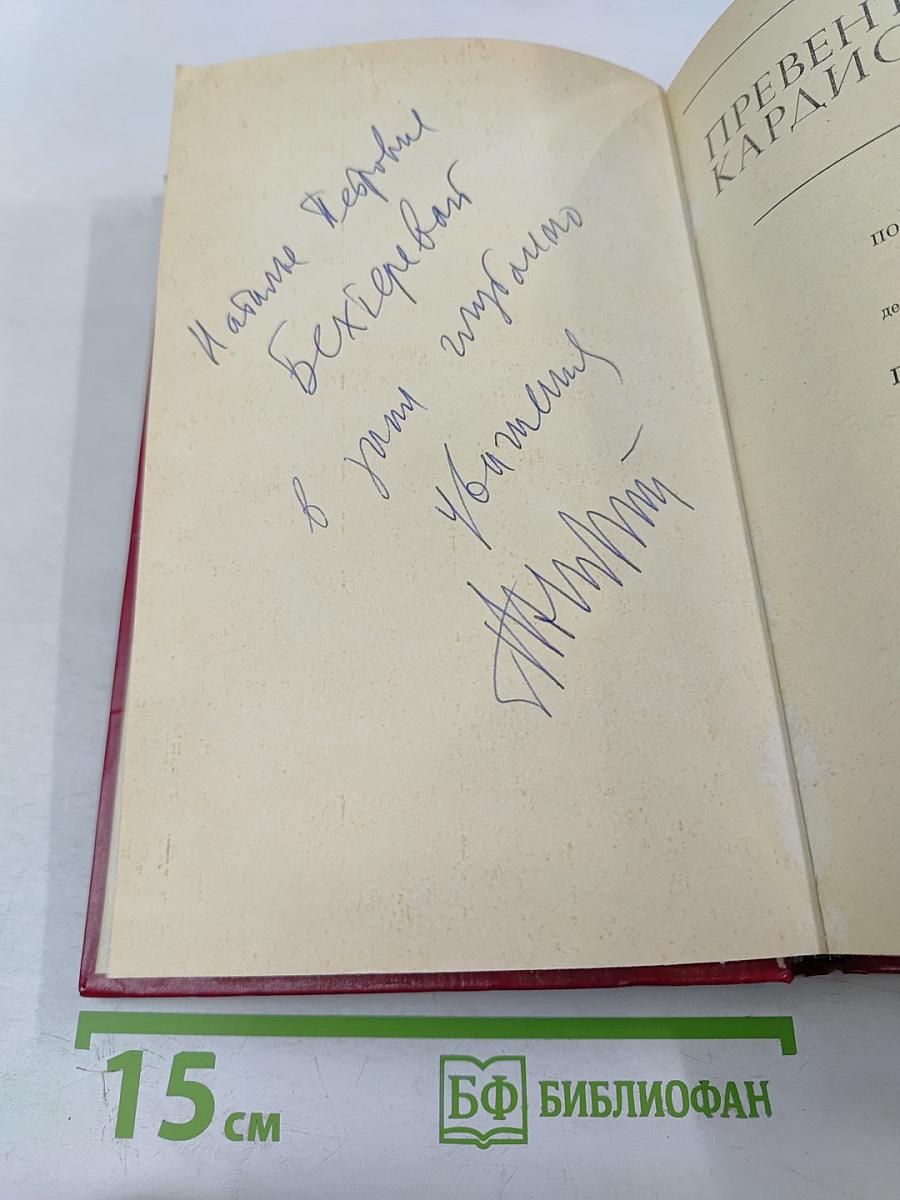 Наталье Петровне
Бехтеревой
в знак глубокого
уважения
ПРЕВЕНТ
КАРДИО
по
де
15 см
БФ БИБЛИОФАН